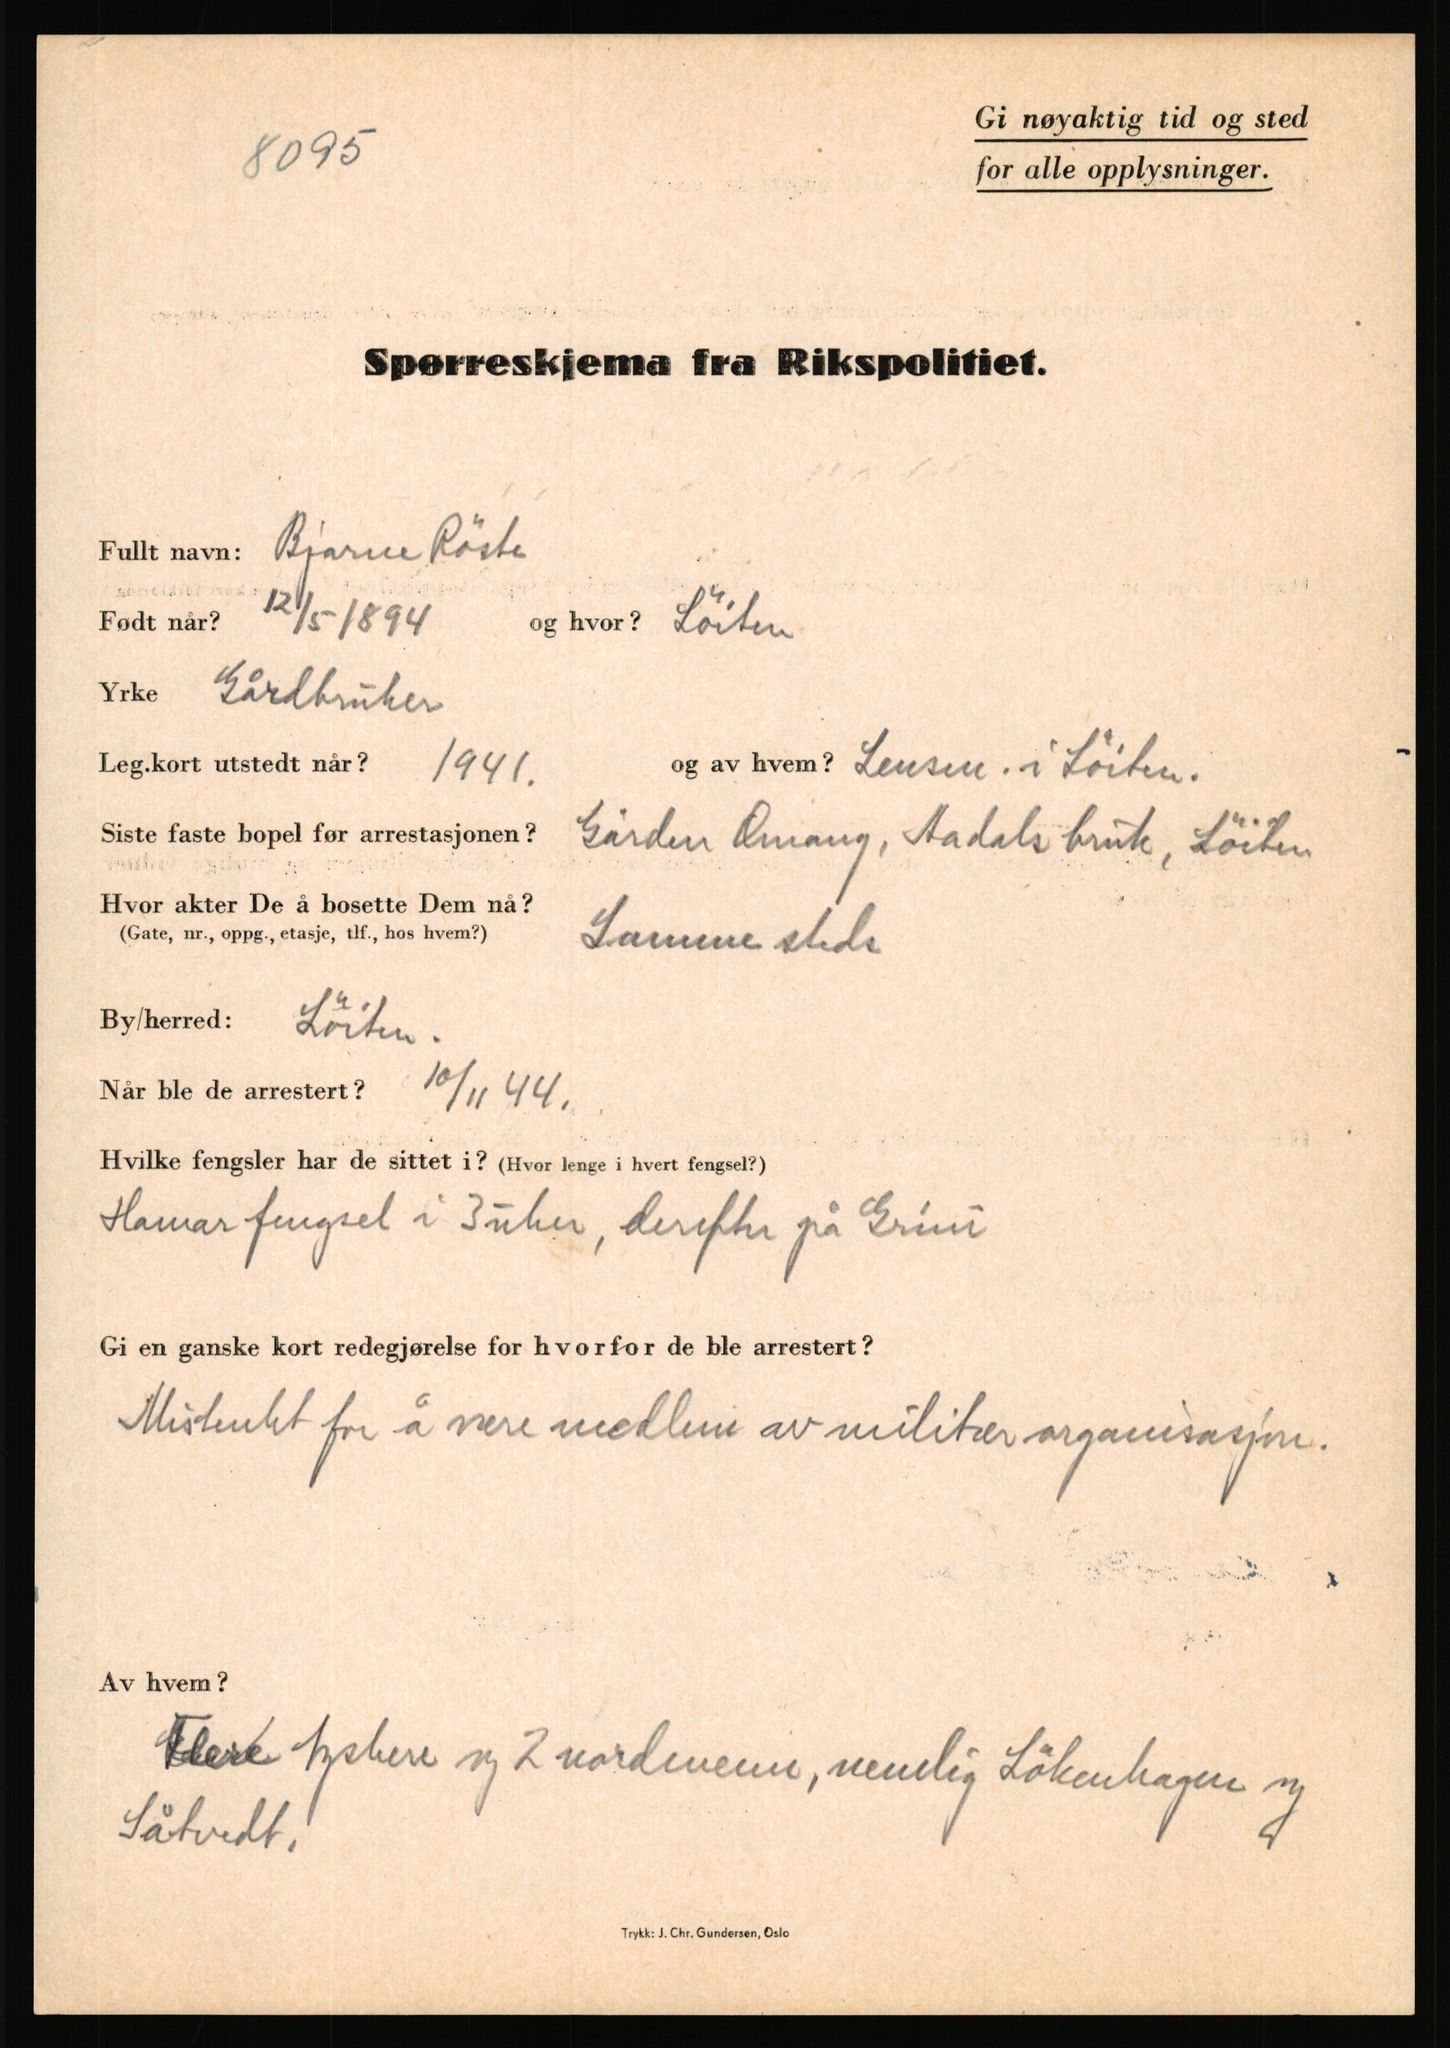 8095
Gi nøyaktig tid og sted
for alle opplysninger.
Spørreskjema fra Rikspolitiet.
Fullt navn: Bjarne Röste
Født når? 12/5/1894 og hvor? Löiten
Yrke Gårdbruker
Leg.kort utstedt når? 1941. og av hvem? Lensm. i Löiten.
Siste faste bopel før arrestasjonen? Gården Omang, Aadals bruk, Löiten
Hvor akter De å bosette Dem nå?
(Gate, nr., oppg., etasje, tlf., hos hvem?) Samme steds
By/herred: Löiten.
Når ble de arrestert? 10/11 44.
Hvilke fengsler har de sittet i? (Hvor lenge i hvert fengsel?)
Hamar fengsel i 3 uker, derefter på Grini
Gi en ganske kort redegjørelse for hvorfor de ble arrestert?
Mistenkt for å være medlem av militær organisasjon.
Av hvem?
Flere tyskere og 2 nordmenn, nemlig Lökenhagen og
Såtvedt.
Trykk: J. Chr. Gundersen, Oslo